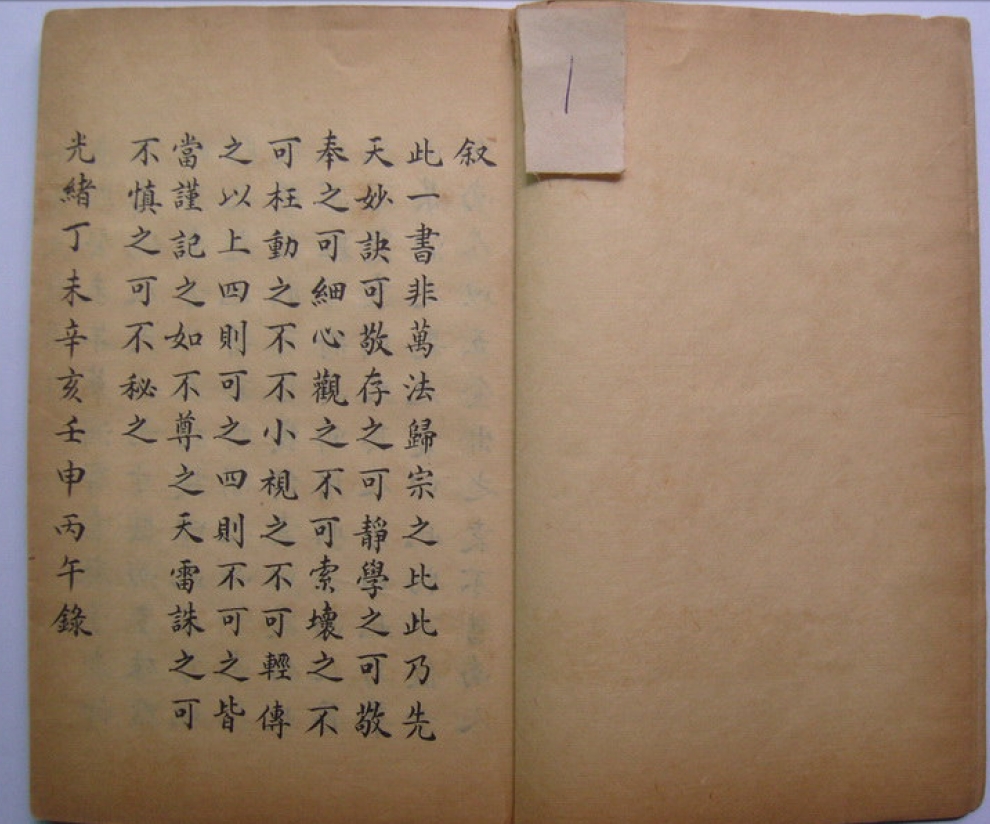 叙
此一書非萬法歸宗之比此乃先
天妙訣可敬存之可靜學之可敬
奉之可細心觀之不可索壞之不
可枉動之不不小視之不可輕傳
之以上四則可之四則不可之皆
當謹記之如不尊之天雷誅之可
不慎之可不秘之
光緒丁未辛亥壬申丙午錄